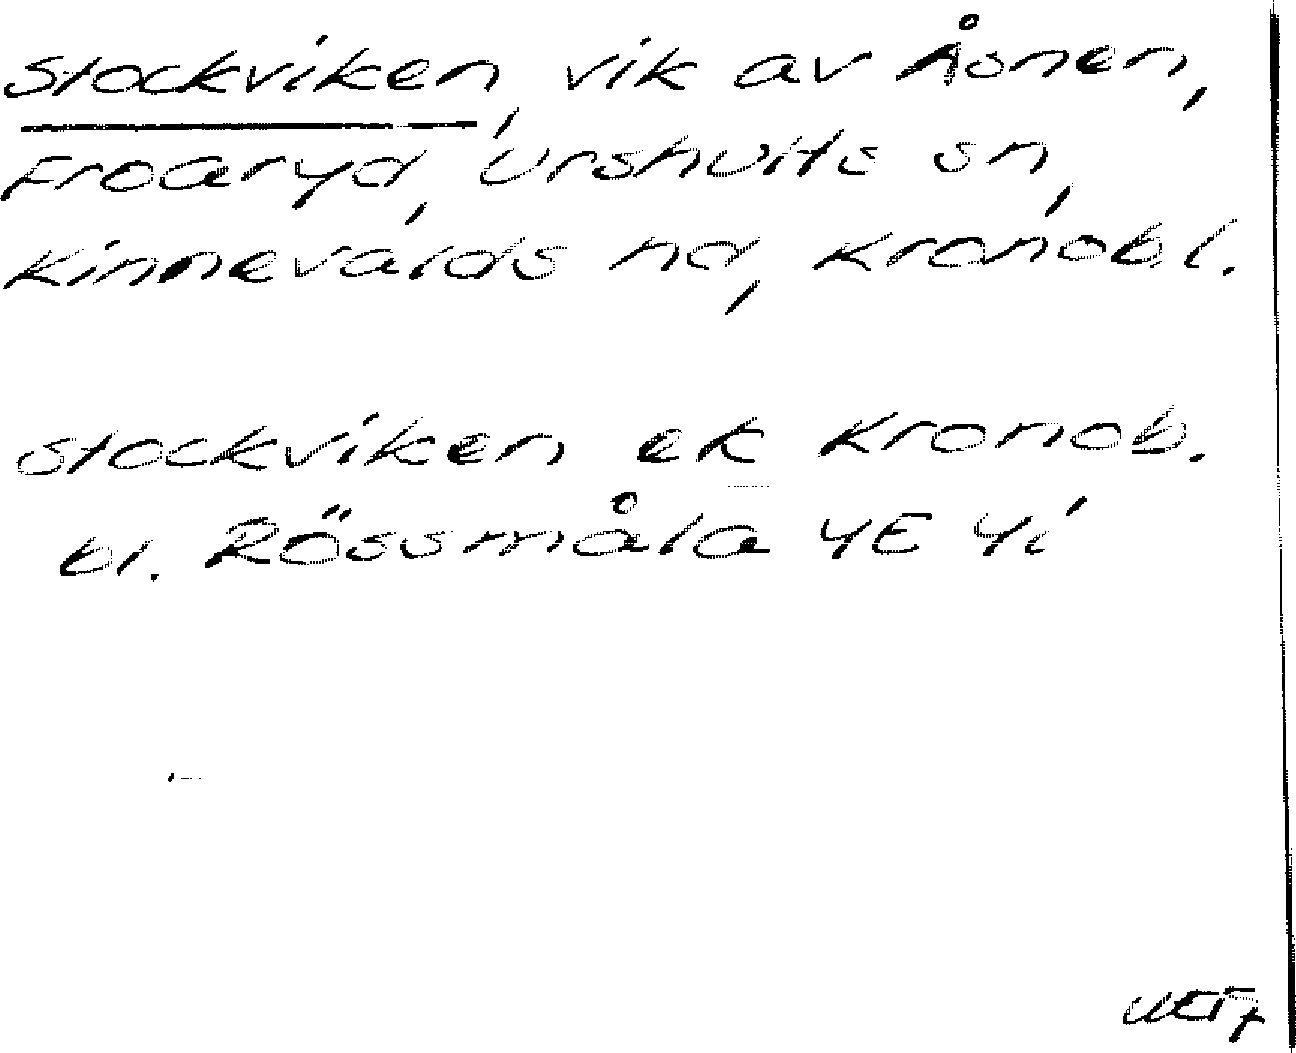 Stockviken, vik av Åsnen,
Froaryd, Urshults sn,
Kinnevalds hd, Kronob.l.
Stockviken ek Kronob.
bl. Rössmåla 4E 4i